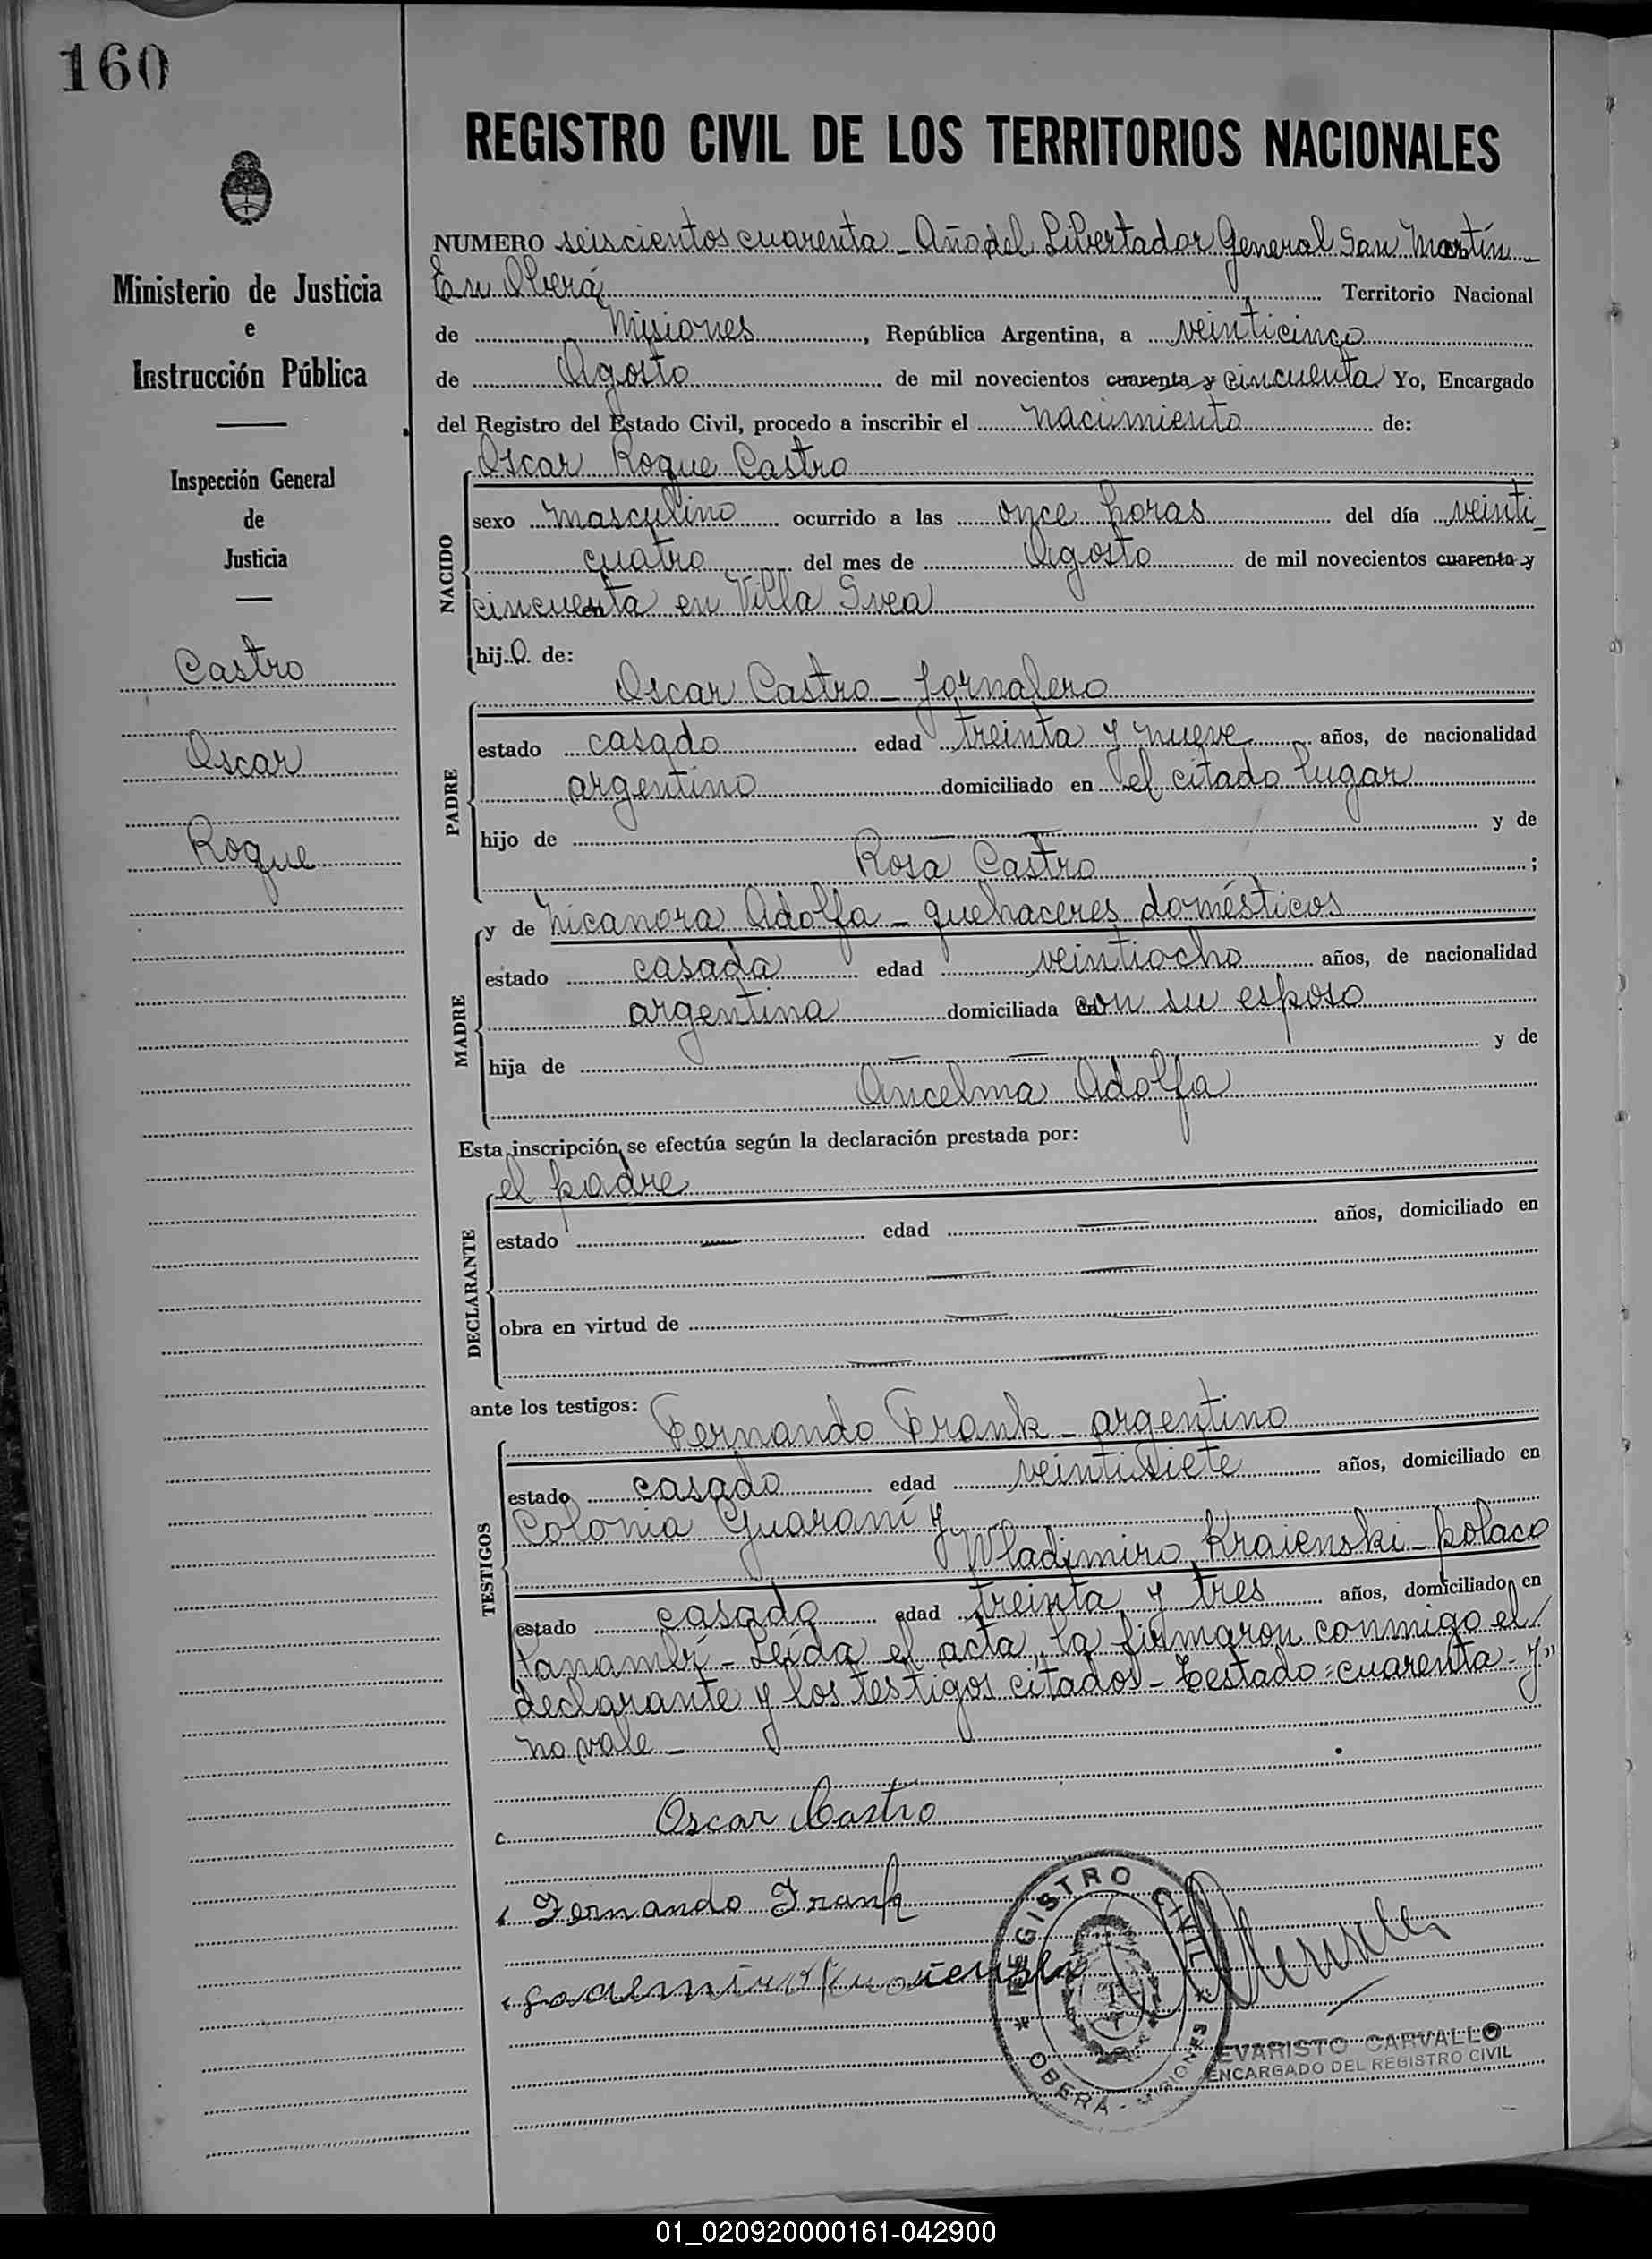 160
REGISTRO CIVIL DE LOS TERRITORIOS NACIONALES
Ministerio de Justicia
e
Instrucción Pública
Inspección General
de
Justicia
Castro
Oscar
Roque
NUMERO seiscientos cuarenta - Año del Libertador General San Martín -
En Oberá Territorio Nacional
de Misiones, República Argentina, a veinticinco
de Agosto de mil novecientos cuarenta y cincuenta Yo, Encargado
del Registro del Estado Civil, procedo a inscribir el nacimiento de:
Oscar Roque Castro
NACIDO
sexo masculino ocurrido a las once horas del día veinti-
cuatro del mes de Agosto de mil novecientos cuarenta y
cincuenta en Villa Svea
hijo de:
Oscar Castro - Jornalero
PADRE
estado casado edad treinta y nueve años, de nacionalidad
argentino domiciliado en el citado lugar
hijo de y de
Rosa Castro ;
y de Nicanora Adolfa - quehaceres domésticos
MADRE
estado casada edad veintiocho años, de nacionalidad
argentina domiciliada con su esposo
hija de y de
Ancelma Adolfa
Esta inscripción se efectúa según la declaración prestada por:
el padre
DECLARANTE
estado edad años, domiciliado en
obra en virtud de
ante los testigos: Fernando Frank - argentino
TESTIGOS
estado casado edad veintisiete años, domiciliado en
Colonia Guaraní y
Wladimiro Kraienski - polaco
estado casado edad treinta y tres años, domiciliado en
Panambí - Leída el acta, la firmaron conmigo el
declarante y los testigos citados - Testado: cuarenta - y"
no vale -
Oscar Castro
Fernando Frank
REGISTRO CIVIL
OBERÁ - MISIONES
EVARISTO CARVALLO
ENCARGADO DEL REGISTRO CIVIL
01_020920000161-042900